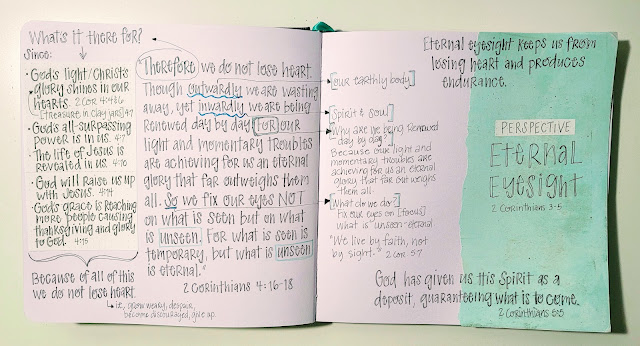 What's it there for?
Since:
• God's light/Christ's
glory shines in our
hearts. 2 Cor 4:4+6
[treasure in clay jars] 4:7
• God's all-surpassing
power is in us. 4:7
• The life of Jesus is
revealed in us. 4:10
• God will raise us up
with Jesus. 4:14
• God's grace is reaching
more people causing
thanksgiving and glory
to God. 4:15
Because of all of this
we do not lose heart.
ie, grow weary, despair,
become discouraged, give up.
"Therefore we do not lose heart.
Though outwardly we are wasting
away, yet inwardly we are being
renewed day by day. For our
light and momentary troubles
are achieving for us an eternal
glory that far outweighs them
all. So we fix our eyes NOT
on what is seen but on what
is unseen. For what is seen is
temporary, but what is unseen
is eternal."
2 Corinthians 4:16-18
Eternal eyesight keeps us from
losing heart and produces
endurance.
[our earthly body]
[Spirit & soul]
Why are we being renewed
day by day?
Because our light and
momentary troubles are
achieving for us an eternal
glory that far outweighs
them all.
[What do we do?]
Fix our eyes on [focus]
what is unseen-eternal
"We live by faith, not
by sight." 2 Cor 5:7
PERSPECTIVE
Eternal
Eyesight
2 Corinthians 3-5
God has given us His Spirit as a
deposit, guaranteeing what is to come.
2 Corinthians 5:5